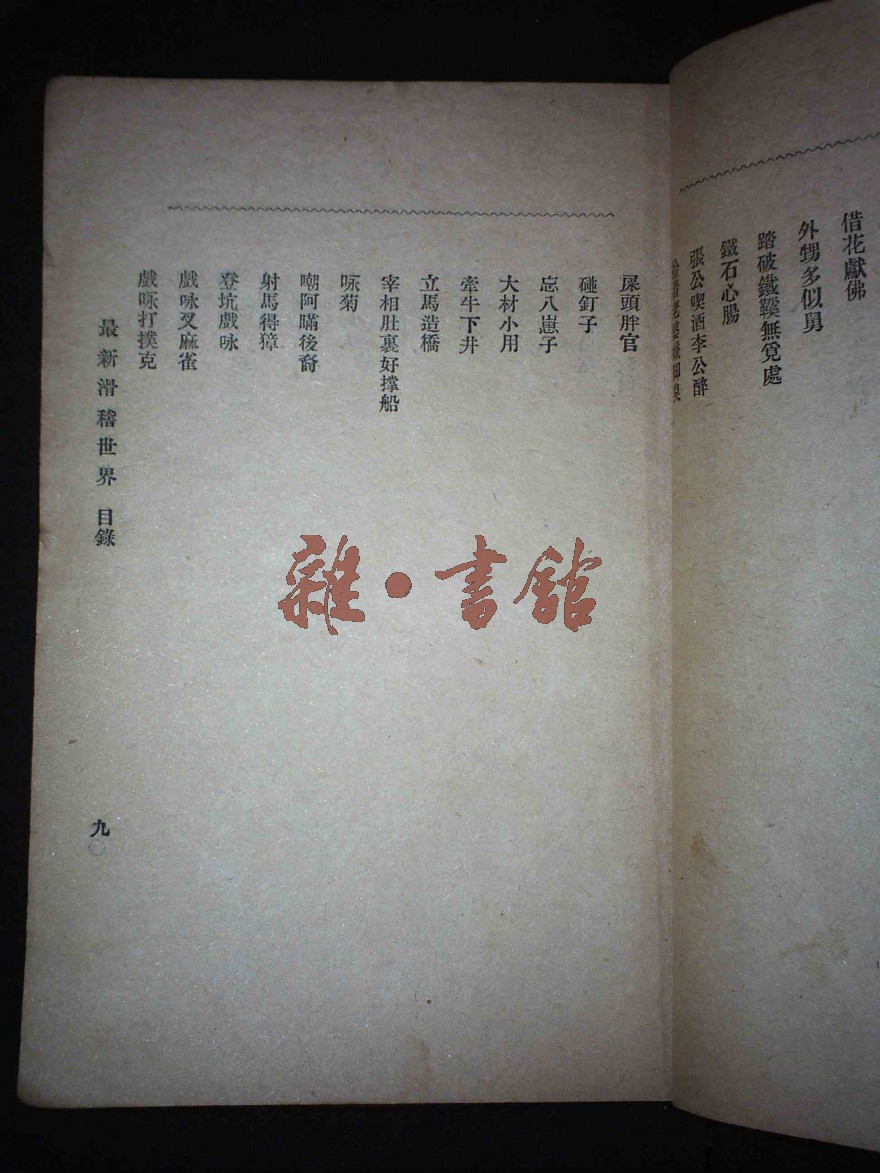 借花獻佛
外甥多似舅
踏破鐵鞵無覓處
鐵石心腸
張公喫酒李公醉
屎頭胖官
碰釘子
忘八崽子
大材小用
牽牛下井
立馬造橋
宰相肚裏好撑船
咏菊
嘲阿瞞後裔
射馬得獐
登坑戲咏
戲咏叉麻雀
戲咏打撲克
最新滑稽世界 目錄
九
雜·書館